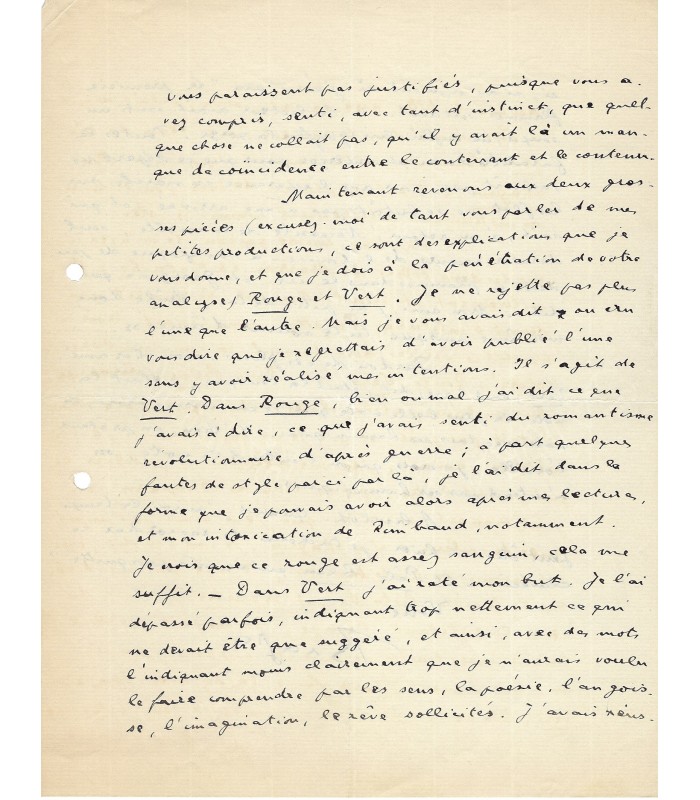 vous paraissent pas justifiés, puisque vous a-
vez compris, senti, avec tant d'instinct, que quel-
que chose ne collait pas, qu'il y avait là un man-
que de coïncidence entre le contenant et le contenu.
Maintenant revenons aux deux gros-
ses pièces (excusez-moi de tant vous parler de mes
petites productions, ce sont des explications que je
vous donne, et que je dois à la pénétration de votre
analyse) Rouge et Vert. Je ne rejette pas plus
l'une que l'autre. Mais je vous avais dit ou cru
vous dire que je regrettais d'avoir publié l'une
sans y avoir réalisé mes intentions. Il s'agit de
Vert. Dans Rouge, bien ou mal j'ai dit ce que
j'avais à dire, ce que j'avais senti du romantisme
revolutionnaire d'après guerre; à part quelques
fautes de style par ci par là, je l'ai dit dans la
forme que je pouvais avoir alors après mes lectures,
et mon intoxication de Rimbaud, notamment.
Je crois que ce rouge est assez sanguin, cela me
suffit. — Dans Vert j'ai raté mon but. Je l'ai
dépassé parfois, indiquant trop nettement ce qui
ne devait être que suggéré, et ainsi, avec des mots
l'indiquant moins clairement que je n'aurais voulu
le faire comprendre par les sens, la poésie, l'angois-
se, l'imagination, le rêve sollicités. J'avais réus-